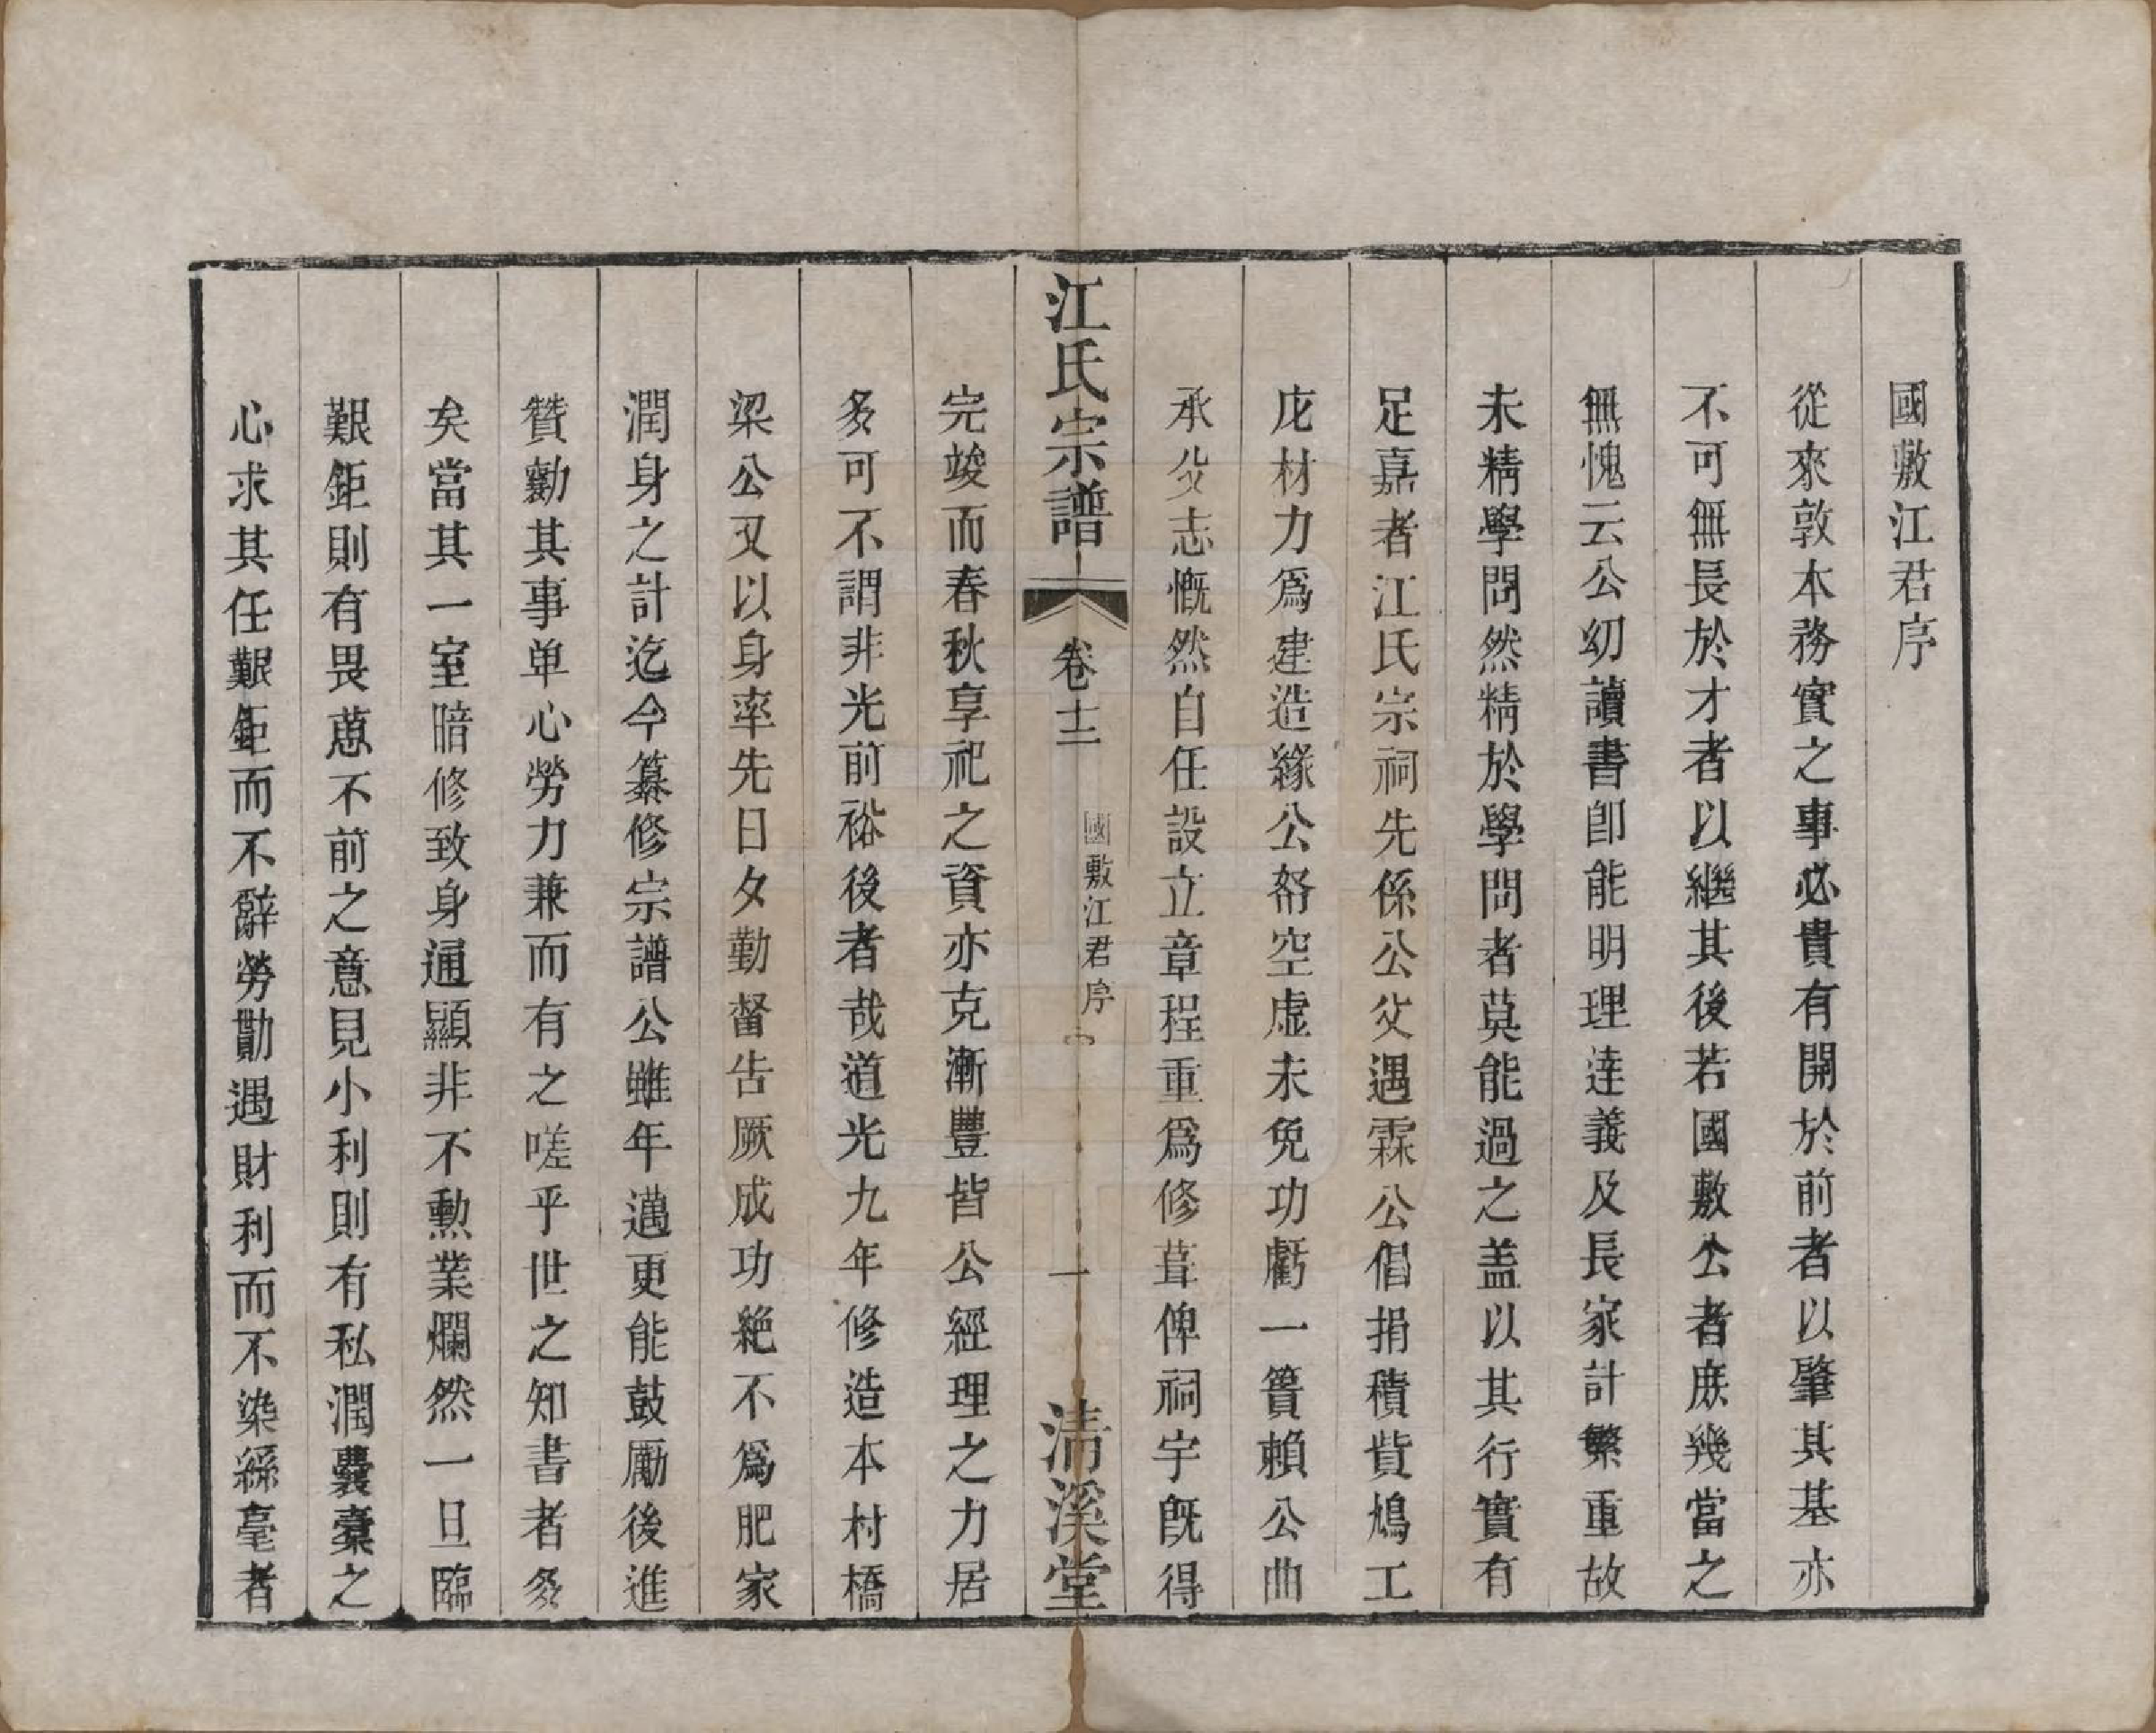 國敷江君序
從來敦本務實之事必貴有開於前者以肇其基亦
不可無長於才者以繼其後若國敷公者庶幾當之
無愧云公幼讀書卽能明理達義及長家計繁重故
未精學問然精於學問者莫能過之盖以其行實有
足嘉者江氏宗祠先係公父遇霖公倡捐積貲鳩工
庀材力爲建造緣公帑空虛未免功虧一簣賴公曲
承父志慨然自任設立章程重爲修葺俾祠宇旣得
江氏宗譜
卷十二
國敷江君序
一
清溪堂
完竣而春秋享祀之資亦克漸豐皆公經理之力居
多可不謂非光前裕後者哉道光九年修造本村橋
梁公又以身率先日夕勤督告厥成功絶不爲肥家
潤身之計迄今纂修宗譜公雖年邁更能鼓勵後進
贊勷其事单心勞力兼而有之嗟乎世之知書者多
矣當其一室暗修致身通顯非不勲業爛然一旦臨
艱鉅則有畏葸不前之意見小利則有私潤囊橐之
心求其任艱鉅而不辭勞勩遇財利而不染絲毫者